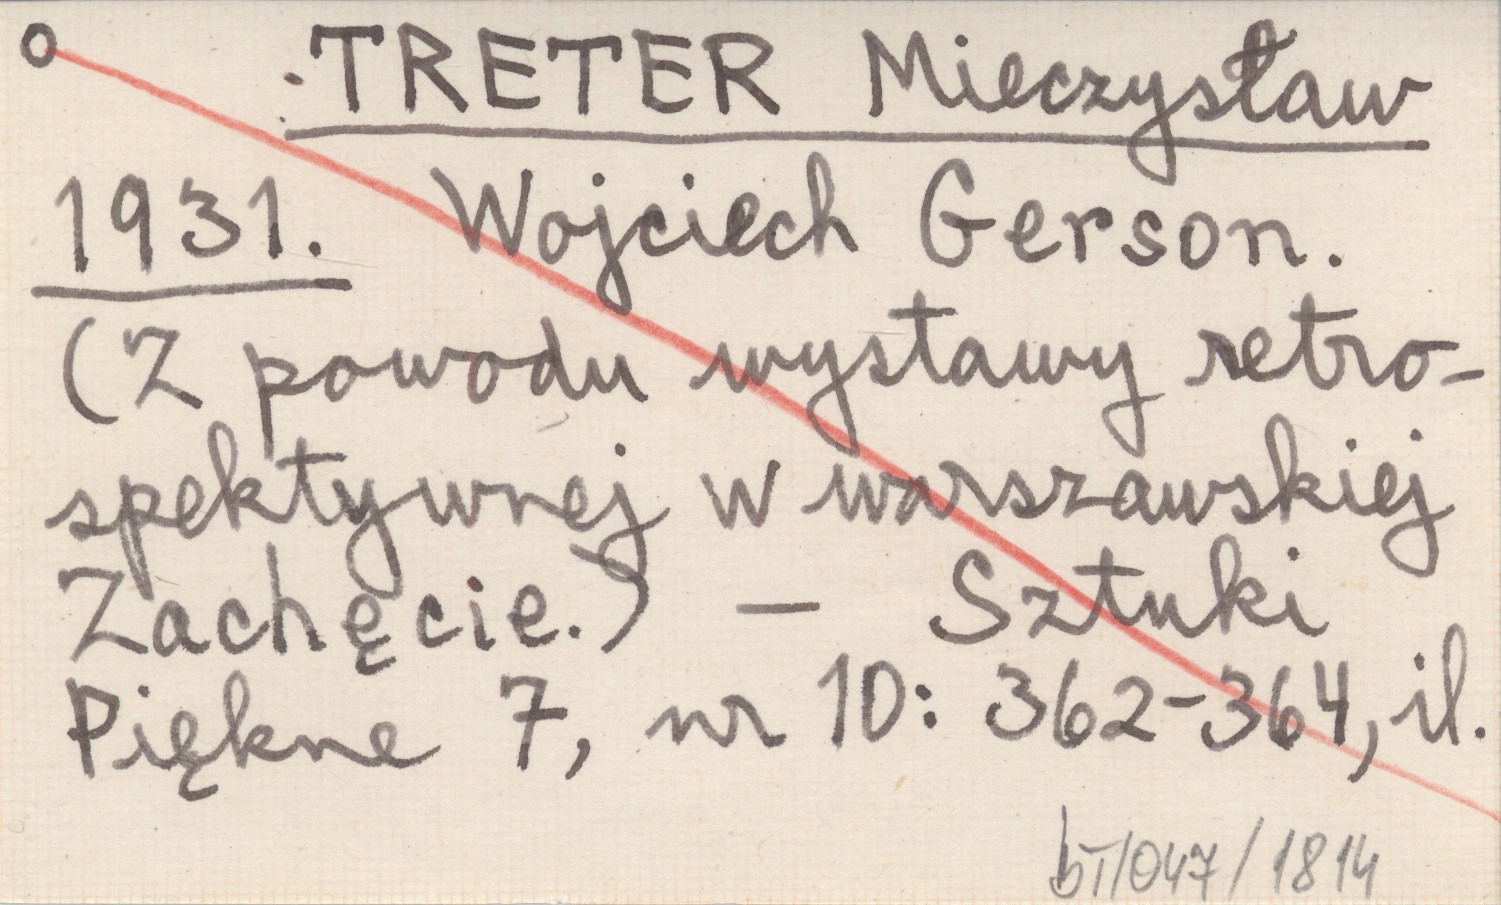 TRETER Mieczysław
1931. Wojciech Gerson.
(Z powodu wystawy retro-
spektywnej w warszawskiej
Zachęcie.) — Sztuki
Piękne 7, nr 10: 362-364, il.
bT/047/1814